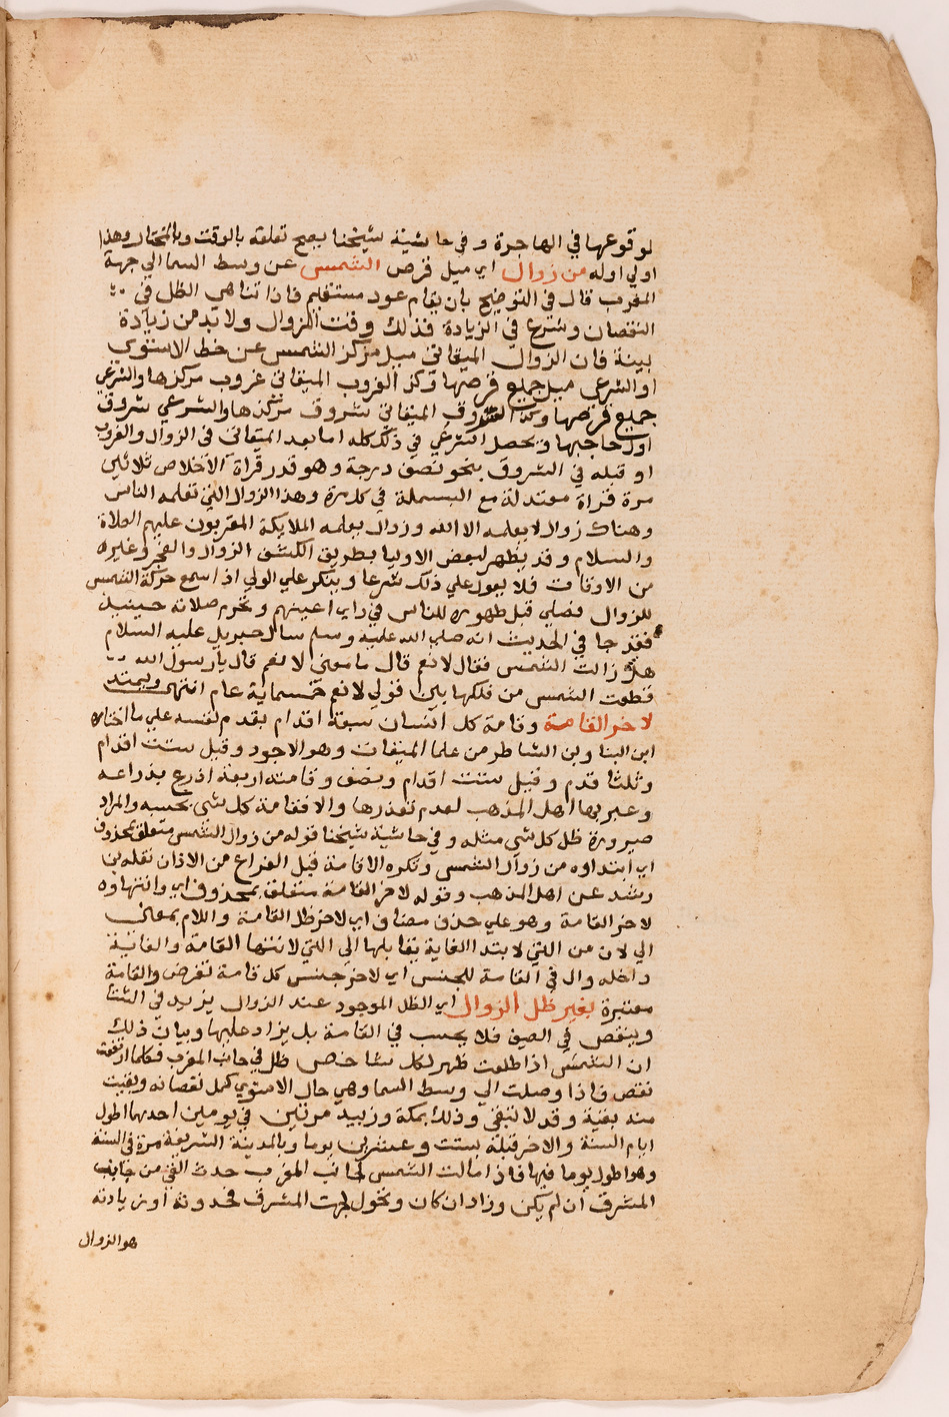 لوقوعها في الهاجرة وفي حاشية شيخنا يصح تعلقه بالوقت وبالمختار وهذا
اولي اوله من زوال اي ميل قرص الشمس عن وسط السما الي جهة
المغرب قال في التوضيح بان يقام عود مستقيم فاذا تناهي الظل في
النقصان وشرع في الزيادة فذلك وقت الزوال ولا بد من زيادة
بينة فان الزوال الميقاتي ميل مركز الشمس عن خط الاستوي
او الشرعي ميل جميع قرصها وكذ الغروب الميقاتي غروب مركزها والشرعي
جميع قرصها وكذا الشروق الميقاتي شروق مركزها والشرعي شروق
اول حاجبها ويحصل الشرعي في ذلك كله اما بعد الميقاتي في الزوال والغروب
او قبله في الشروق بنحو نصف درجة وهو قدر قراة الاخلاص ثلاثين
مرة قراة معتدلة مع البسملة في كل مرة وهذا الزوال الذي تعلمه الناس
وهناك زوال لا يعلمه الا الله وزوال يعلمه الملايكة المقربون عليهم الصلاة
والسلام وقد يظهر لبعض الاوليا بطريق الكشف الزوال والفجر وغيره
من الاوقات فلا يعول علي ذلك شرعا وينكر علي الولي اذا سمع حركة الشمس
للزوال فصلي قبل ظهوره للناس في راي اعينهم وتحرم صلاته حينيذ
فقد جا في الحديث انه صلي الله عليه وسلم سال جبريل عليه السلام
هل زالت الشمس فقال لا نعم قال ما معني لا نعم قال يا رسول الله
قطعت الشمس من فلكها بين قولي لا نعم خمسماية عام انتهي ويمتد
لاخر القامة وقامة كل انسان سبعة اقدام بقدم نفسه علي ما اختاره
ابن البنا وبن الشاطر من علما الميقات وهو الاجود وقيل ستت اقدام
وثلثا قدم وقيل ستت اقدام ونصف وقامته اربعة اذرع بذراعه
وعبر بها اهل المذهب لعدم تعذرها والا فقامة كل شي بحسبه والمراد
صيرورة ظل كل شي مثله وفي حاشية شيخنا قوله من زوال الشمس متعلق بمحذوف
اي ابتداوه من زوال الشمس وتكره الاقامة قبل الفراغ من الاذان نقله بن
رشد عن اهل المذهب وقوله لاخر القامة متعلق بمحذوف اي وانتهاوه
لاخر القامة وهو علي حذف مضاف اي لاخر ظل القامة واللام بمعني
الي لان من اللتي لابتدا الغاية يقابلها الي اللتي لانتها القامة والغاية
داخله وال في القامة للجنس اي لاخر جنس كل قامة تفرض والقامة
معتبرة بغير ظل الزوال اي الظل الموجود عند الزوال يزيد في الشتا
وينقص في الصيف فلا يحسب في القامة بل يزاد عليها وبيان ذلك
ان الشمس اذا طلعت ظهر لكل شاخص ظل في جانب المغرب فكلما ارتفعت
نقص فاذا وصلت الي وسط السما وهي حال الاستوي كمل نقصانه وبقيت
منه بقية وقد لا تبقي وذلك بمكة وزبيد مرتين في يومين احدهما اطول
ايام السنة والاخر قبله بستت وعشرين يوما وبالمدينة الشريفة مرة في السنة
وهو اطول يوما فيها فاذا مالت الشمس لجانب المغرب حدث الفي من جانب
المشرق ان لم يكن وزاد ان كان وتحول لجهت المشرق فحدوثه او زيادته
هو الزوال